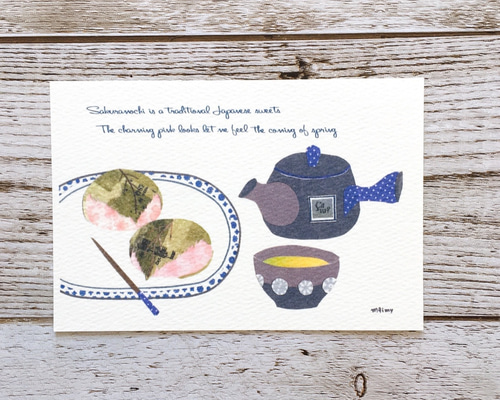 Sakuramochi is a traditional Japanese sweets
The charming pink looks let me feel the coming of spring